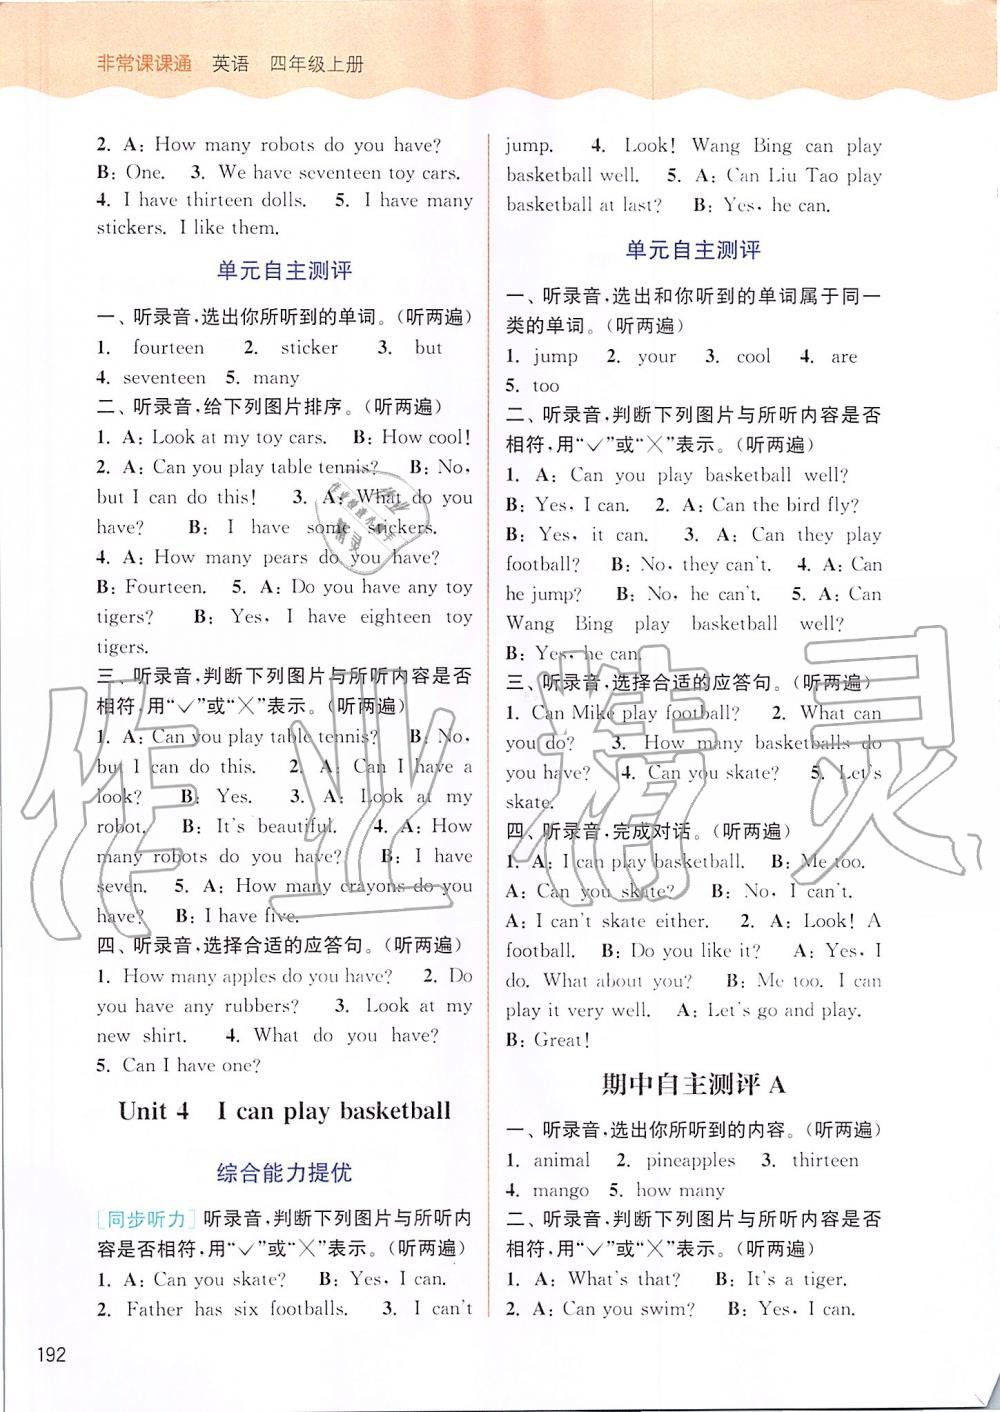 非常课课通 英语 四年级上册
2. A: How many robots do you have?
B: One. 3. We have seventeen toy cars.
4. I have thirteen dolls. 5. I have many
stickers. I like them.
单元自主测评
一、听录音,选出你所听到的单词。(听两遍)
1. fourteen 2. sticker 3. but
4. seventeen 5. many
二、听录音,给下列图片排序。(听两遍)
1. A: Look at my toy cars. B: How cool!
2. A: Can you play table tennis? B: No,
but I can do this! 3. A: What do you
have? B: I have some stickers.
4. A: How many pears do you have?
B: Fourteen. 5. A: Do you have any toy
tigers? B: Yes, I have eighteen toy
tigers.
三、听录音,判断下列图片与所听内容是否
相符,用“✓”或“✕”表示。(听两遍)
1. A: Can you play table tennis? B: No,
but I can do this. 2. A: Can I have a
look? B: Yes. 3. A: Look at my
robot. B: It's beautiful. 4. A: How
many robots do you have? B: I have
seven. 5. A: How many crayons do you
have? B: I have five.
四、听录音,选择合适的应答句。(听两遍)
1. How many apples do you have? 2. Do
you have any rubbers? 3. Look at my
new shirt. 4. What do you have?
5. Can I have one?
Unit 4 I can play basketball
综合能力提优
[同步听力] 听录音,判断下列图片与所听内
容是否相符,用“✓”或“✕”表示。(听两遍)
1. A: Can you skate? B: Yes, I can.
2. Father has six footballs. 3. I can't
jump. 4. Look! Wang Bing can play
basketball well. 5. A: Can Liu Tao play
basketball at last? B: Yes, he can.
单元自主测评
一、听录音,选出和你听到的单词属于同一
类的单词。(听两遍)
1. jump 2. your 3. cool 4. are
5. too
二、听录音,判断下列图片与所听内容是否
相符,用“✓”或“✕”表示。(听两遍)
1. A: Can you play basketball well?
B: Yes, I can. 2. A: Can the bird fly?
B: Yes, it can. 3. A: Can they play
football? B: No, they can't. 4. A: Can
he jump? B: No, he can't. 5. A: Can
Wang Bing play basketball well?
B: Yes, he can.
三、听录音,选择合适的应答句。(听两遍)
1. Can Mike play football? 2. What can
you do? 3. How many basketballs do
you have? 4. Can you skate? 5. Let's
skate.
四、听录音,完成对话。(听两遍)
1. A: I can play basketball. B: Me too.
A: Can you skate? B: No, I can't.
A: I can't skate either. 2. A: Look! A
football. B: Do you like it? A: Yes, I
do. What about you? B: Me too. I can
play it very well. A: Let's go and play.
B: Great!
期中自主测评 A
一、听录音,选出你所听到的内容。(听两遍)
1. animal 2. pineapples 3. thirteen
4. mango 5. how many
二、听录音,判断下列图片与所听内容是否
相符,用“✓”或“✕”表示。(听两遍)
1. A: What's that? B: It's a tiger.
2. A: Can you swim? B: Yes, I can.
192
作业精灵